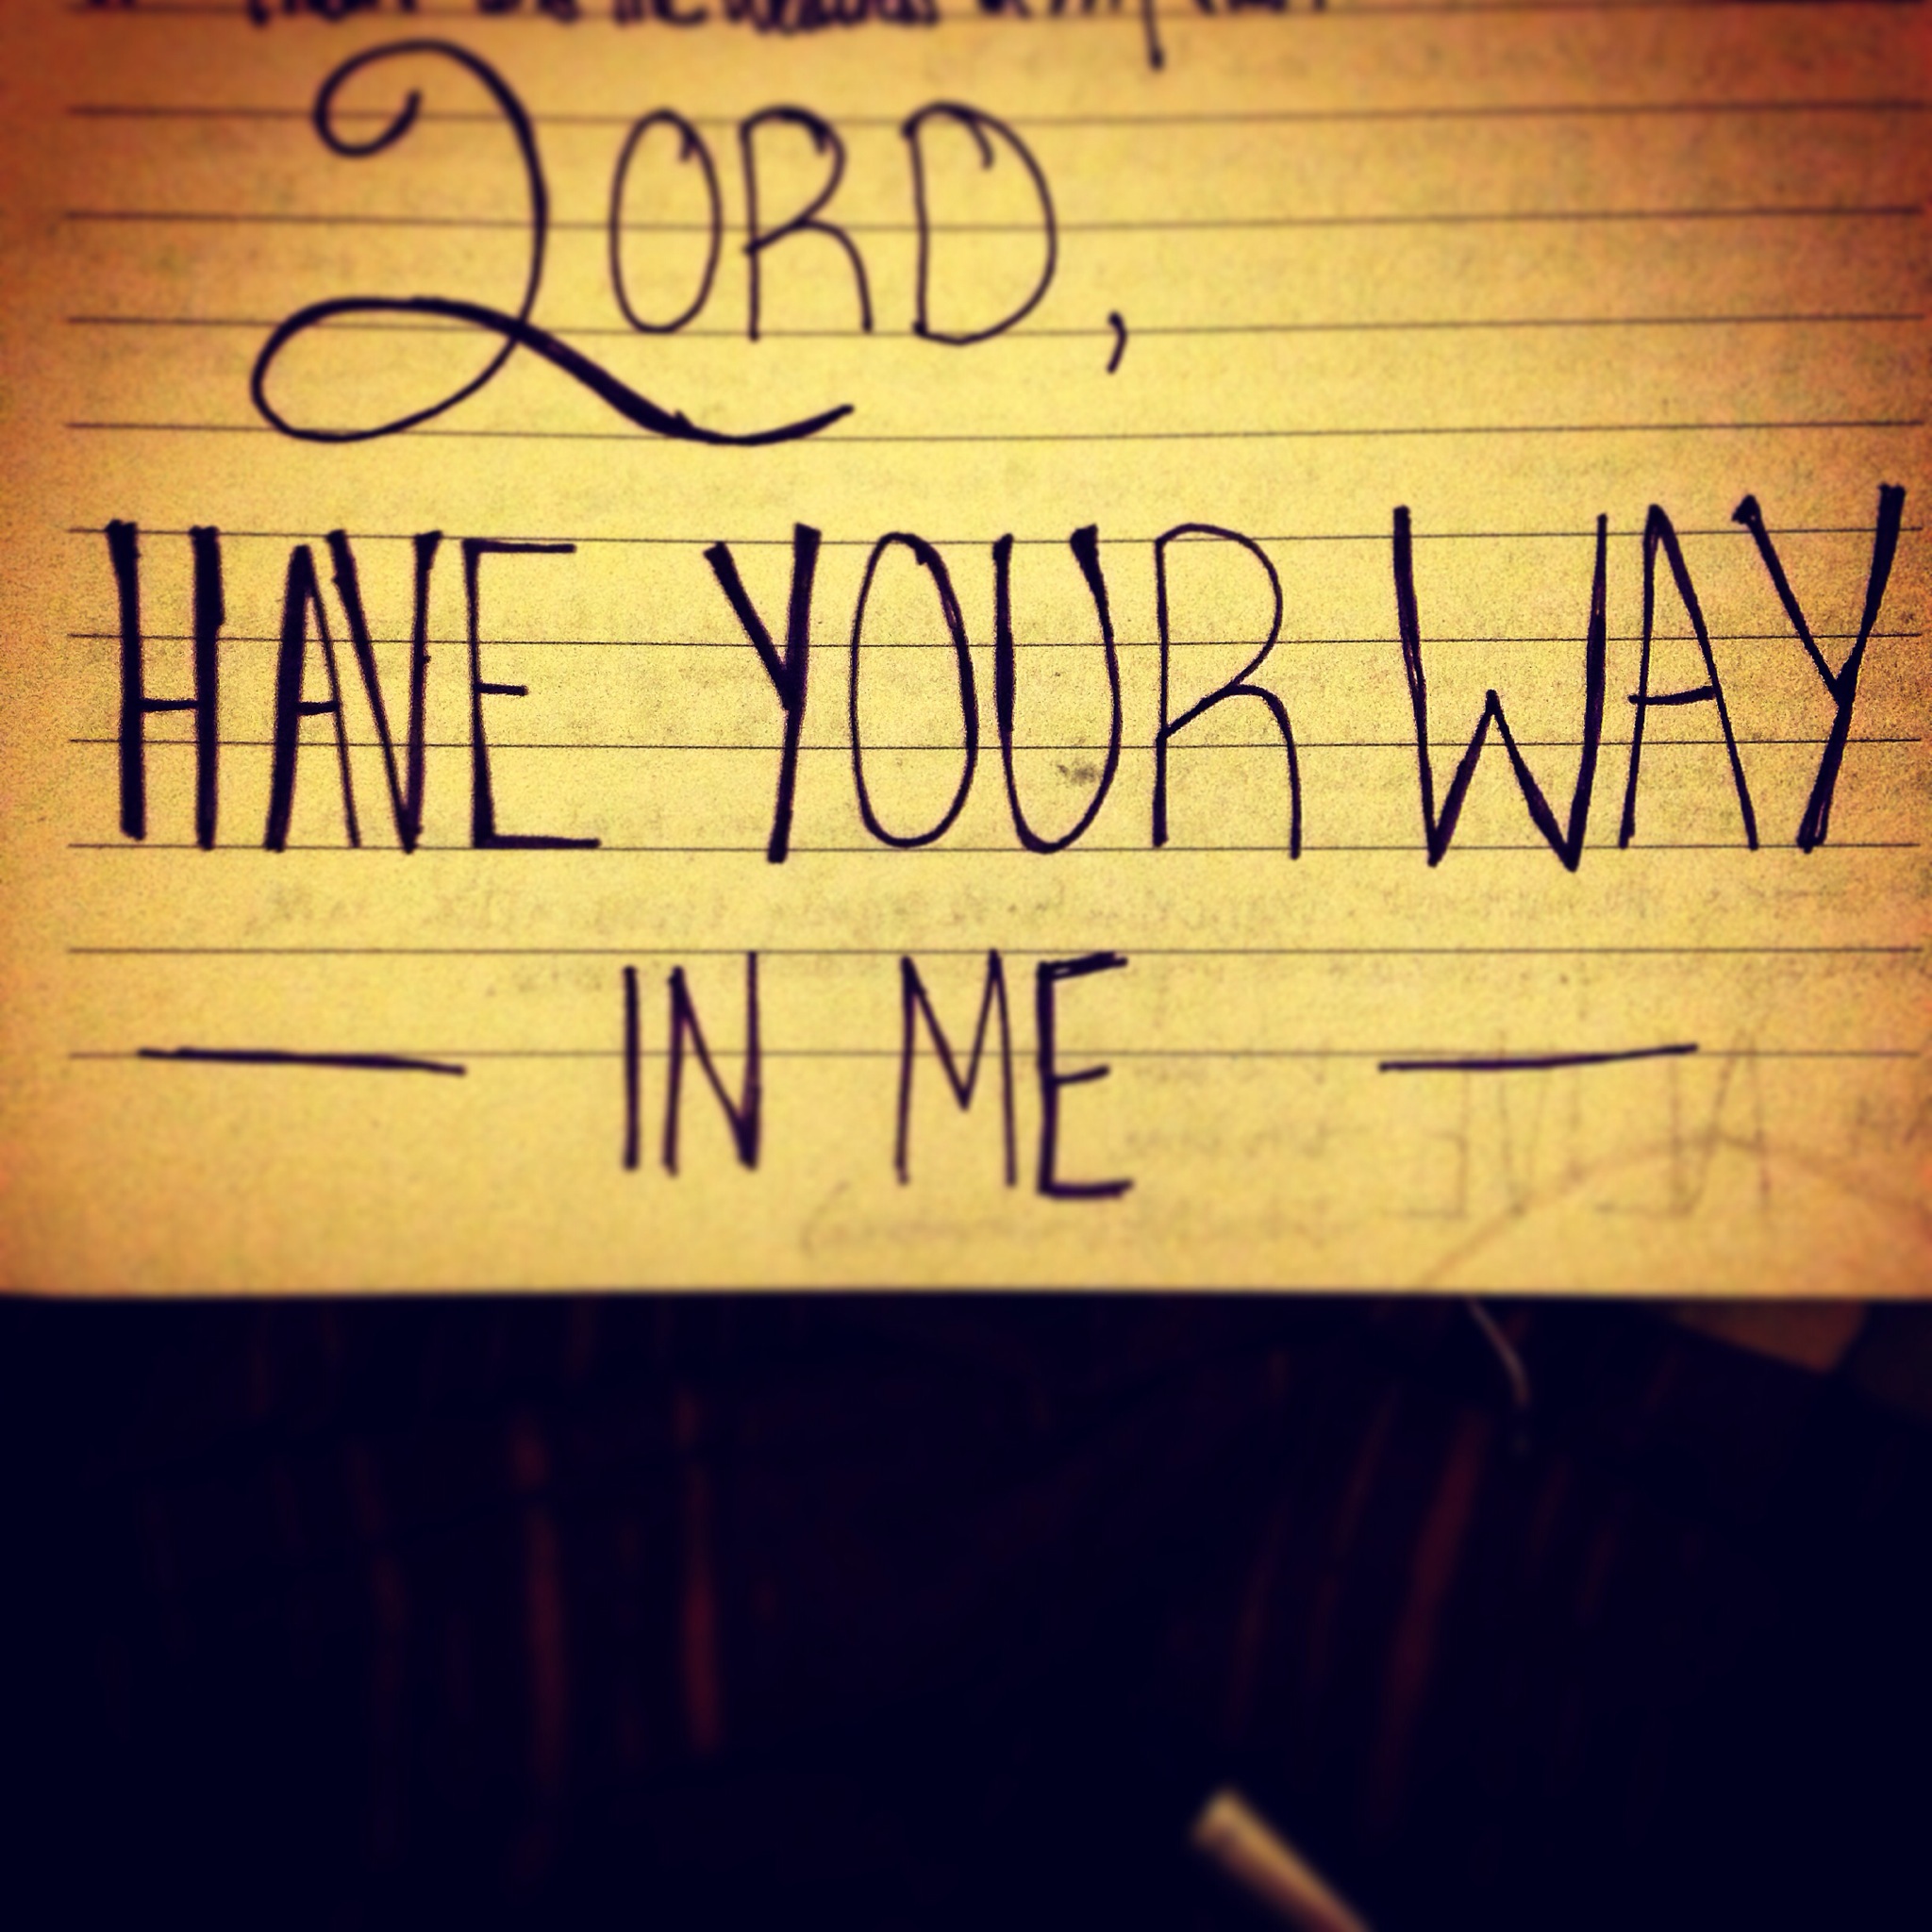 LORD,
HAVE YOUR WAY
— IN ME —